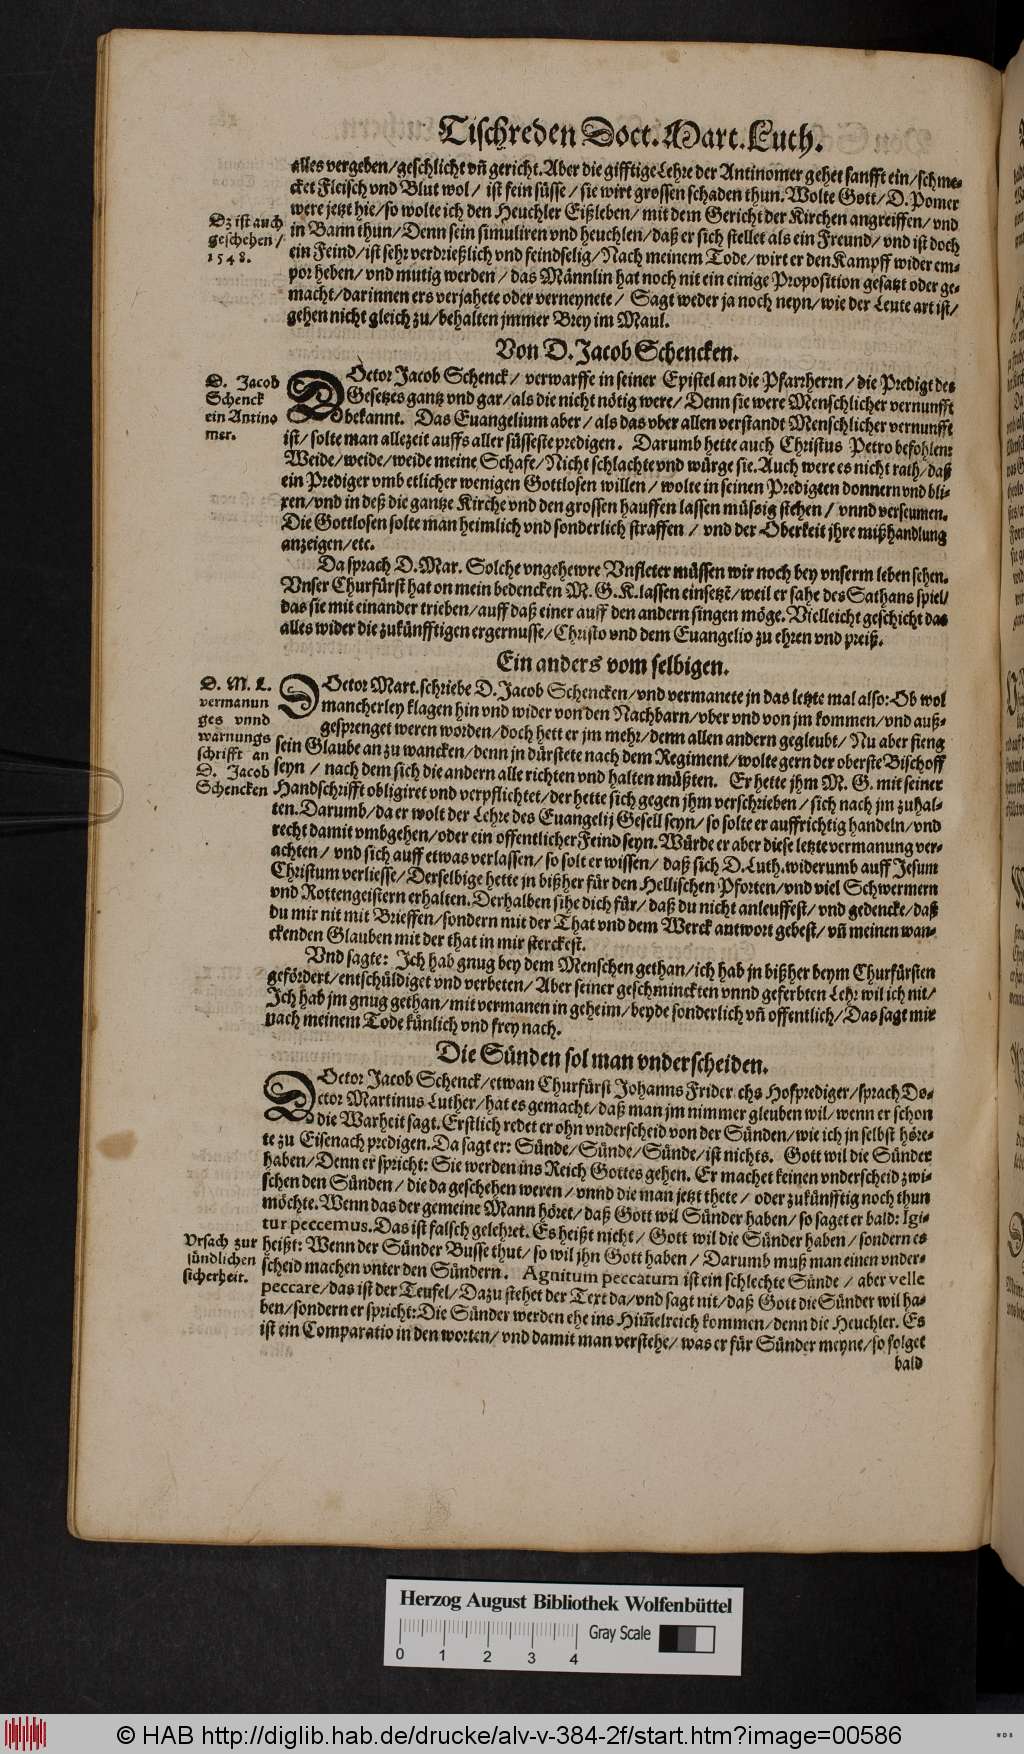 Tischreden Doct. Mart. Luth.
alles vergeben/geschlicht vñ gericht. Aber die gifftige Lehre der Antinomer gehet sanfft ein/schme-
cket Fleisch vnd Blut wol / ist fein süsse / sie wirt grossen schaden thun. Wolte Gott/D. Pomer
were jetzt hie/so wolte ich den Heuchler Eißleben/ mit dem Gericht der Kirchen angreiffen/ vnd
in Bann thun/Denn sein simuliren vnd heuchlen/daß er sich stellet als ein Freund/ vnd ist doch
ein Feind/ist sehr verdrießlich vnd feindselig/Nach meinem Tode/wirt er den Kampff wider em-
por heben/ vnd mutig werden / das Männlin hat noch nit ein einige Proposition gesatzt oder ge-
macht/darinnen ers verjahete oder verneynete / Sagt weder ja noch neyn/wie der Leute art ist/
gehen nicht gleich zu/behalten jmmer Brey im Maul.
Dz ist auch
geschehen/
1548.
Von D. Jacob Schencken.
D. Jacob
Schenck
ein Antino
mer.
DOctor Jacob Schenck/ verwarffe in seiner Epistel an die Pfarrherrn/die Predigt des
Gesetzes gantz vnd gar/als die nicht nötig were/ Denn sie were Menschlicher vernunfft
bekannt. Das Euangelium aber/ als das vber allen verstandt Menschlicher vernunfft
ist/ solte man allezeit auffs aller süsseste predigen. Darumb hette auch Christus Petro befohlen:
Weide/weide/weide meine Schafe/Nicht schlachte vnd würge sie. Auch were es nicht rath/daß
ein Prediger vmb etlicher wenigen Gottlosen willen/ wolte in seinen Predigten donnern vnd bli-
xen/vnd in deß die gantze Kirche vnd den grossen hauffen lassen müssig stehen / vnnd verseumen.
Die Gottlosen solte man heimlich vnd sonderlich straffen / vnd der Oberkeit jhre mißhandlung
anzeigen/etc.
Da sprach D. Mar. Solche vngehewre Vnfleter müssen wir noch bey vnserm leben sehen.
Vnser Churfürst hat on mein bedencken M. G. K. lassen einsetzẽ/weil er sahe des Sathans spiel/
das sie mit einander trieben/auff daß einer auff den andern singen möge. Vielleicht geschicht das
alles wider die zukünfftigen ergernusse/Christo vnd dem Euangelio zu ehren vnd preiß.
Ein anders vom selbigen.
D. M. L.
vermanun
ges vnnd
warnungs
schrifft an
D. Jacob
Schencken
DOctor Mart. schriebe D. Jacob Schencken/vnd vermanete jn das letzte mal also: Ob wol
mancherley klagen hin vnd wider von den Nachbarn/vber vnd von jm kommen/vnd auß-
gesprenget weren worden/doch hett er jm mehr/denn allen andern gegleubt/Nu aber fieng
sein Glaube an zu wancken/denn jn dürstete nach dem Regiment/wolte gern der oberste Bischoff
seyn / nach dem sich die andern alle richten vnd halten müßten. Er hette jhm M. G. mit seiner
Handschrifft obligiret vnd verpflichtet/der hette sich gegen jhm verschrieben / sich nach jm zuhal-
ten. Darumb/da er wolt der Lehre des Euangelij Gesell seyn/ so solte er auffrichtig handeln/vnd
recht damit vmbgehen/oder ein offentlicher Feind seyn. Würde er aber diese letzte vermanung ver-
achten / vnd sich auff etwas verlassen/ so solt er wissen/ daß sich D. Luth. widerumb auff Jesum
Christum verliesse/Derselbige hette jn bißher für den Hellischen Pforten/vnd viel Schwermern
vnd Rottengeistern erhalten. Derhalben sihe dich für/ daß du nicht anleuffest/ vnd gedencke/daß
du mir nit mit Brieffen/sondern mit der That vnd dem Werck antwort gebest/ vñ meinen wan-
ckenden Glauben mit der that in mir sterckest.
Vnd sagte: Jch hab gnug bey dem Menschen gethan/ich hab jn bißher beym Churfürsten
gefördert/entschüldiget vnd verbeten/ Aber seiner geschminckten vnnd geferbten Lehr wil ich nit/
Jch hab jm gnug gethan/mit vermanen in geheim/beyde sonderlich vñ offentlich/Das sagt mir
nach meinem Tode künlich vnd frey nach.
Die Sünden sol man vnderscheiden.
DOctor Jacob Schenck/etwan Churfürst Johanns Friderichs Hofprediger/sprach Do-
ctor Martinus Luther/hat es gemacht/daß man jm nimmer gleuben wil/wenn er schon
die Warheit sagt. Erstlich redet er ohn vnderscheid von der Sünden/wie ich jn selbst höre-
te zu Eisenach predigen. Da sagt er: Sünde/Sünde/Sünde/ist nichts. Gott wil die Sünder
haben/Denn er spricht: Sie werden ins Reich Gottes gehen. Er machet keinen vnderscheid zwi-
schen den Sünden / die da geschehen weren / vnnd die man jetzt thete / oder zukünfftig noch thun
möchte. Wenn das der gemeine Mann höret/ daß Gott wil Sünder haben/ so saget er bald: Igi-
tur peccemus. Das ist falsch gelehret. Es heißt nicht/ Gott wil die Sünder haben/ sondern es
heißt: Wenn der Sünder Busse thut/ so wil jhn Gott haben / Darumb muß man einen vnder-
scheid machen vnter den Sündern. Agnitum peccatum ist ein schlechte Sünde / aber velle
peccare/das ist der Teufel/Dazu stehet der Text da/vnd sagt nit/daß Gott die Sünder wil ha-
ben/sondern er spricht: Die Sünder werden ehe ins Him̃elreich kommen/denn die Heuchler. Es
ist ein Comparatio in den worten/ vnd damit man verstehe/ was er für Sünder meyne/so folget
Vrsach zur
sündlichen
sicherheit.
bald
Herzog August Bibliothek Wolfenbüttel
Gray Scale
0 1 2 3 4
© HAB http://diglib.hab.de/drucke/alv-v-384-2f/start.htm?image=00586